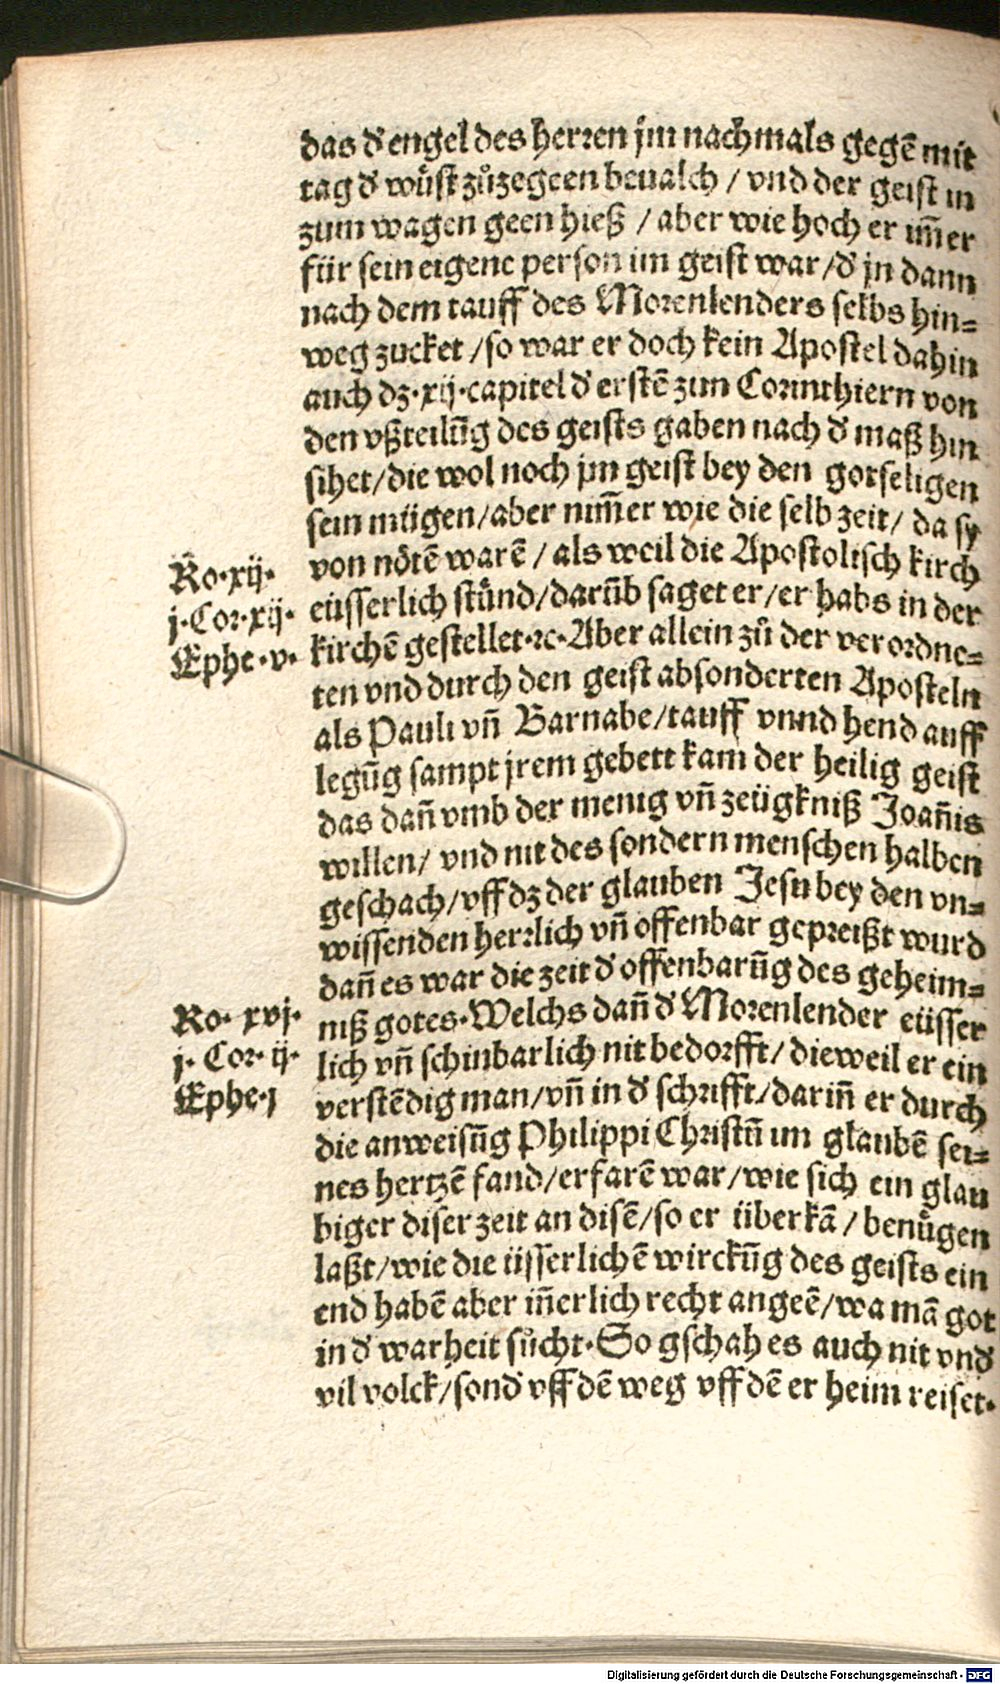 das d' engel des herren jm nachmals gegē mit
tag d' wuͤst zůzegeen beualch / vnd der geist in
zum wagen geen hieß / aber wie hoch er im̄er
für sein eigene person im geist war / d' jn dann
nach dem tauff des Morenlenders selbs hin-
weg zucket / so war er doch kein Apostel dahin
auch dz .xij. capitel d' erstē zun Corinthiern von
den vßteilūg des geists gaben nach d' maß hin
sihet / die wol noch jm geist bey den gotseligen
sein mügen / aber nim̄er wie die selb zeit / da sy
von nötē warē / als weil die Apostolisch kirch
Ro. xij.
j. Cor. xij.
Ephe. v.
eüsserlich stuͤnd / darūb saget er / er habs in der
kirchē gestellet. ꝛc. Aber allein zů der verordne-
ten vnd durch den geist absonderten Aposteln
als Pauli vn̄ Barnabe / tauff vnnd hend auff
legūg sampt jrem gebett kam der heilig geist
das dan̄ vmb der menig vn̄ zeügkniß Joan̄is
willen / vnd nit des sondern menschen halben
geschach / vff dz der glauben Jesu bey den vn-
wissenden herrlich vn̄ offenbar gepreißt wurd
dan̄ es war die zeit d' offenbarūg des geheim-
Ro. xvj.
j. Cor. ij.
Ephe. j
niß gotes. Welchs dan̄ d' Morenlender eüsser
lich vn̄ schinbarlich nit bedorfft / dieweil er ein
verstēdig man / vn̄ in d' schrifft / darin̄ er durch
die anweisūg Philippi Christū im glaubē sei-
nes hertzē fand / erfarē war / wie sich ein glau
biger diser zeit an disē / so er überkā / benuͤgen
laßt / wie die üsserlichē wirckūg des geists ein
end habē aber in̄erlich recht angeē / wa mā got
in d' warheit sůcht. So gschah es auch nit vnd'
vil volck / sond' vff dē weg vff dē er heim reiset.
Digitalisierung gefördert durch die Deutsche Forschungsgemeinschaft - DFG